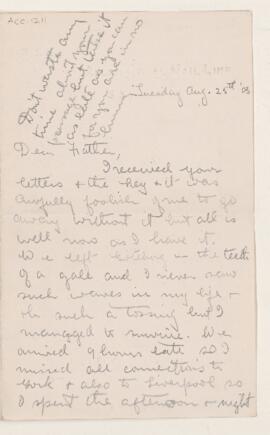 ACC 1211
Don't waste any
time about your
passage but take it
as late as you can
for you are in no
hurry
Tuesday Aug. 25th '03
Dear Father,
I received your
letters & the key & it was
awfully foolish of me to go
away without it but all is
well now as I have it.
We left in the teeth
of a gale and I never saw
such waves in my life &
oh such a tossing but I
managed to survive. We
arrived 9 hours late so I
missed all connections to
York & also to Liverpool so
I spent the afternoon & night